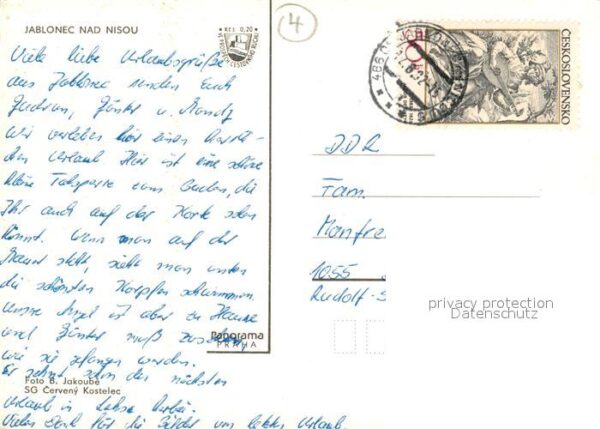 JABLONEC NAD NISOU
Kčs 0,20
4
ČESKOSLOVENSKO
Viele liebe Urlaubsgrüße
aus Jablonec senden Euch
Gudrun, Günter u. Mandy
Wir verleben hier einen
Urlaub Hier ist eine schöne
kleine Talsperre zum Baden, die
Ihr auch auf der Karte sehen
könnt. Wenn man auf der
Mauer steht, sieht man unten
die schönsten Karpfen schwimmen.
Unsre Angel ist aber zu Hause
und Günter muß zusehen,
wie sie gefangen werden.
Er sehnt schon den nächsten
Urlaub
Vielen Dank für die Bilder vom letzten Urlaub.
DDR
Fam.
Manfre
1055
Rudolf-S
Panorama
PRAHA
Foto B. Jakoubě
SG Červený Kostelec
privacy protection
Datenschutz